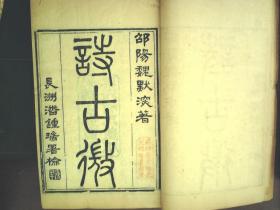 邵陽魏默深著
詩古微
長洲潘鍾瑞署檢